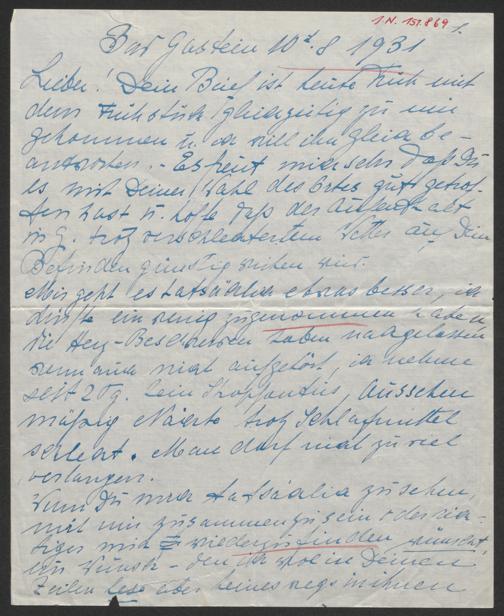 I.N. 151.869
1.
Bad Gastein 10t.8 1931
Lieber! Dein Brief ist heute früh mit
dem Frühstück gleichzeitig zu mir
gekommen u. ich will ihn gleich be-
antworten. - Es freut mich sehr daß Du
es mit Deiner Wahl des Ortes gut getrof-
fen hast u. hoffe daß der Aufenthalt
in G. trotz verschlechtertem Wetter auf Dein
Befinden günstig wirken wird.
Mir geht es tatsächlich etwas besser, ich
dürfte ein wenig zugenommen haben
die Herz-Beschwerden haben nachgelassen
wenn auch nicht aufgehört, ich nehme
seit 2 Tg. kein Strophantus, Aussehen
mäßig Nächte trotz Schlafmittel
schlecht. Man darf nicht zu viel
verlangen.
Wenn Du mich tatsächlich zu sehen,
mit mir zusammen zu sein oder rich-
tiger mich wiederzufinden wünscht
ein Wunsch - den ich wol in Deinen
Zeilen lese aber keineswegs in ihnen